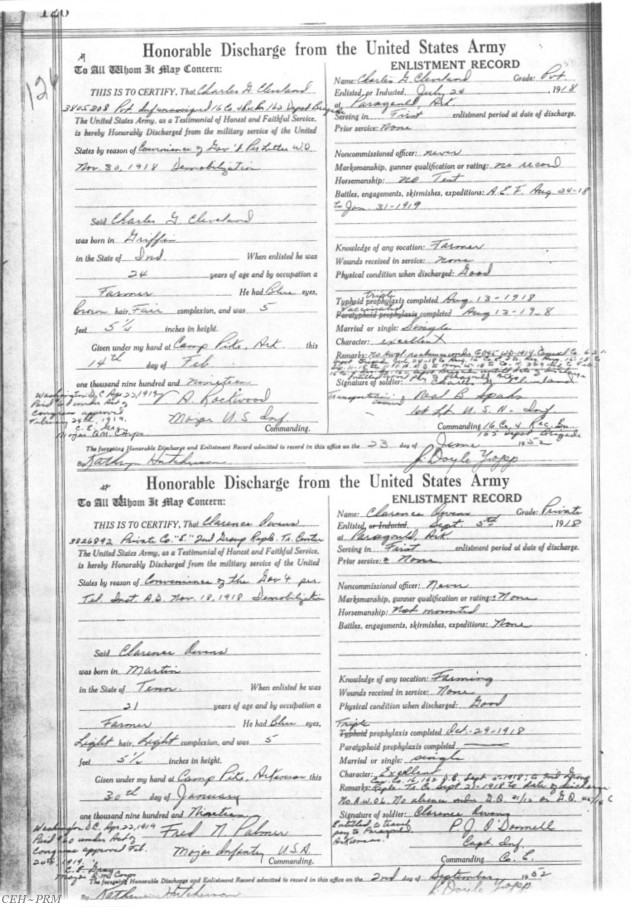 126
126
Honorable Discharge from the United States Army
To All Whom It May Concern:
THIS IS TO CERTIFY, That Charles G. Cleveland
3805208 Pvt. Inf unassigned 16 Co. 4 162 Depot Brigade
The United States Army, as a Testimonial of Honest and Faithful Service,
is hereby Honorably Discharged from the military service of the United
States by reason of Convenience of Gov't. W.D.
Nov. 30, 1918 Demobilization
Said Charles G Cleveland
was born in Griffin
in the State of Ind. When enlisted he was
24 years of age and by occupation a
Farmer He had Blue eyes,
Brown hair, Fair complexion, and was 5
feet 5 1/4 inches in height.
Given under my hand at Camp Pike, Ark this
14th day of Feb
one thousand nine hundred and nineteen
Washington D.C. Apr 22, 1919
Paid $60 under Act of
Congress approved
February 24th, 1919.
Major Q.M. Corps
Rockwood
Major U.S. Inf.
Commanding.
ENLISTMENT RECORD
Name: Charles G. Cleveland Grade: Pvt
Enlisted, or Inducted, July 24, 1918
at Paragould, Ark.
Serving in First enlistment period at date of discharge.
Prior service: None
Noncommissioned officer: never
Marksmanship, gunner qualification or rating: no record
Horsemanship: no Test
Battles, engagements, skirmishes, expeditions: A.E.F. Aug 24-18
to Jan 31-1919
Knowledge of any vocation: Farmer
Wounds received in service: none
Physical condition when discharged: Good
Triple
Typhoid prophylaxis completed Aug 13-1918
Paratyphoid prophylaxis completed Aug 13-19-8
Married or single: Single
Character: excellent
Remarks: No AWOL
Signature of soldier: Charles G. Cleveland
1st Lt. U.S.A. Inf
Commanding 16 Co. 4
Depot Brigade
The foregoing Honorable Discharge and Enlistment Record admitted to record in this office on the 23 day of June 1952
By Kathryn Hutcherson
J. Doyle Yopp
Honorable Discharge from the United States Army
To All Whom It May Concern:
THIS IS TO CERTIFY, That Clarence Owens
3826892 Private Co. "E" 2nd Group Repl. Tr. Center
The United States Army, as a Testimonial of Honest and Faithful Service,
is hereby Honorably Discharged from the military service of the United
States by reason of Convenience of the Gov't per
Tel. Inst. A.G. Nov. 18, 1918 Demobilization
Said Clarence Owens
was born in Martin
in the State of Tenn When enlisted he was
21 years of age and by occupation a
Farmer He had Blue eyes,
Light hair, Light complexion, and was 5
feet 5 1/2 inches in height.
Given under my hand at Camp Pike, Arkansas this
30th day of January
one thousand nine hundred and Nineteen
Washington D.C. Apr 22, 1919
Paid $60 under Act of
Congress approved Feb.
24th, 1919.
Major Q.M. Corps
Fred N. Palmer
Major Infantry U.S.A.
Commanding.
ENLISTMENT RECORD
Name: Clarence Owens Grade: Private
Enlisted, or Inducted, Sept 5th, 1918
at Paragould, Ark
Serving in First enlistment period at date of discharge.
Prior service: None
Noncommissioned officer: Never
Marksmanship, gunner qualification or rating: None
Horsemanship: Not mounted
Battles, engagements, skirmishes, expeditions: None
Knowledge of any vocation: Farming
Wounds received in service: None
Physical condition when discharged: Good
Triple
Typhoid prophylaxis completed Oct-29-1918
Paratyphoid prophylaxis completed
Married or single: single
Character: Excellent
Remarks: Repl. Tr. Co Sept 21-1918 to date of discharge
No A.W.O.L. No absence under G.O.
Signature of soldier: Clarence Owens
Entitled to travel
pay to Paragould
Arkansas
P. J. O'Donnell
Capt. Inf.
Commanding Co. E.
The foregoing Honorable Discharge and Enlistment Record admitted to record in this office on the 2nd day of September 1952
By Katherine Hutcherson
J. Doyle Yopp
CEH~PRM